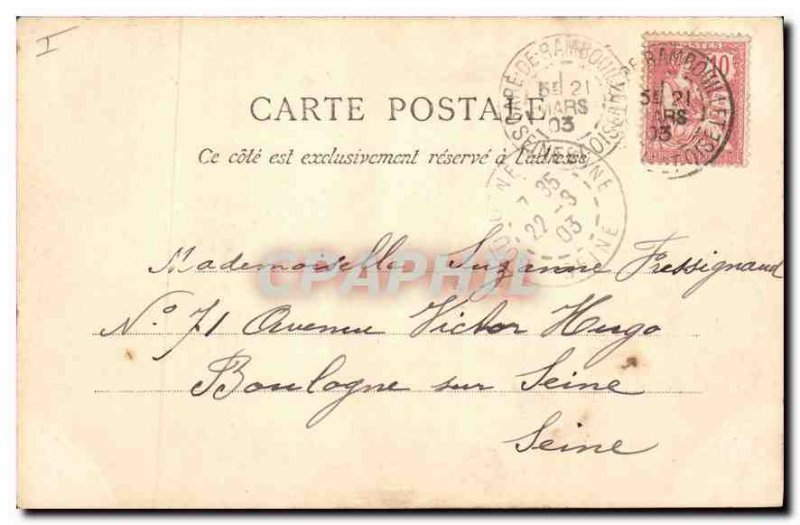 I
CARTE POSTALE
Ce côté est exclusivement réservé à l'adresse
POSTES
10
DE RAMBOUILLET
5E 21
MARS
03
DE RAMBOUILLET
5E 21
MARS
03
SEINE ET OISE
BOULOGNE
SEINE
7 35
22 -3
03
CPAPHIL
Mademoiselle Suzanne Fressignaud
No. 71 Avenue Victor Hugo
Boulogne sur Seine
Seine